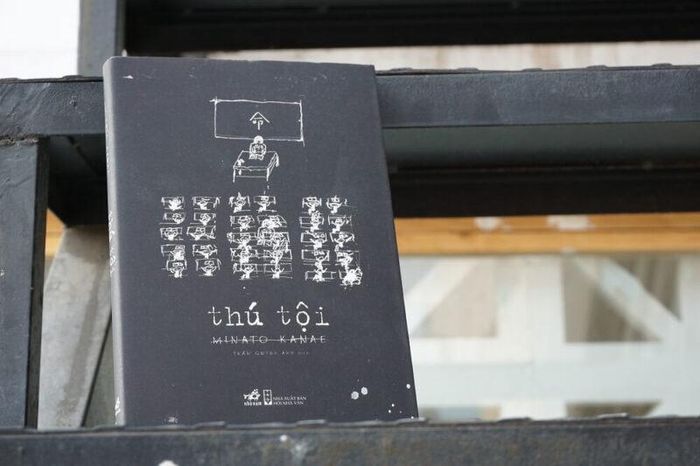 命
thú tội
MINATO KANAE
TRẦN QUỲNH ANH dịch
nhã nam
NHÀ XUẤT BẢN
HỘI NHÀ VĂN